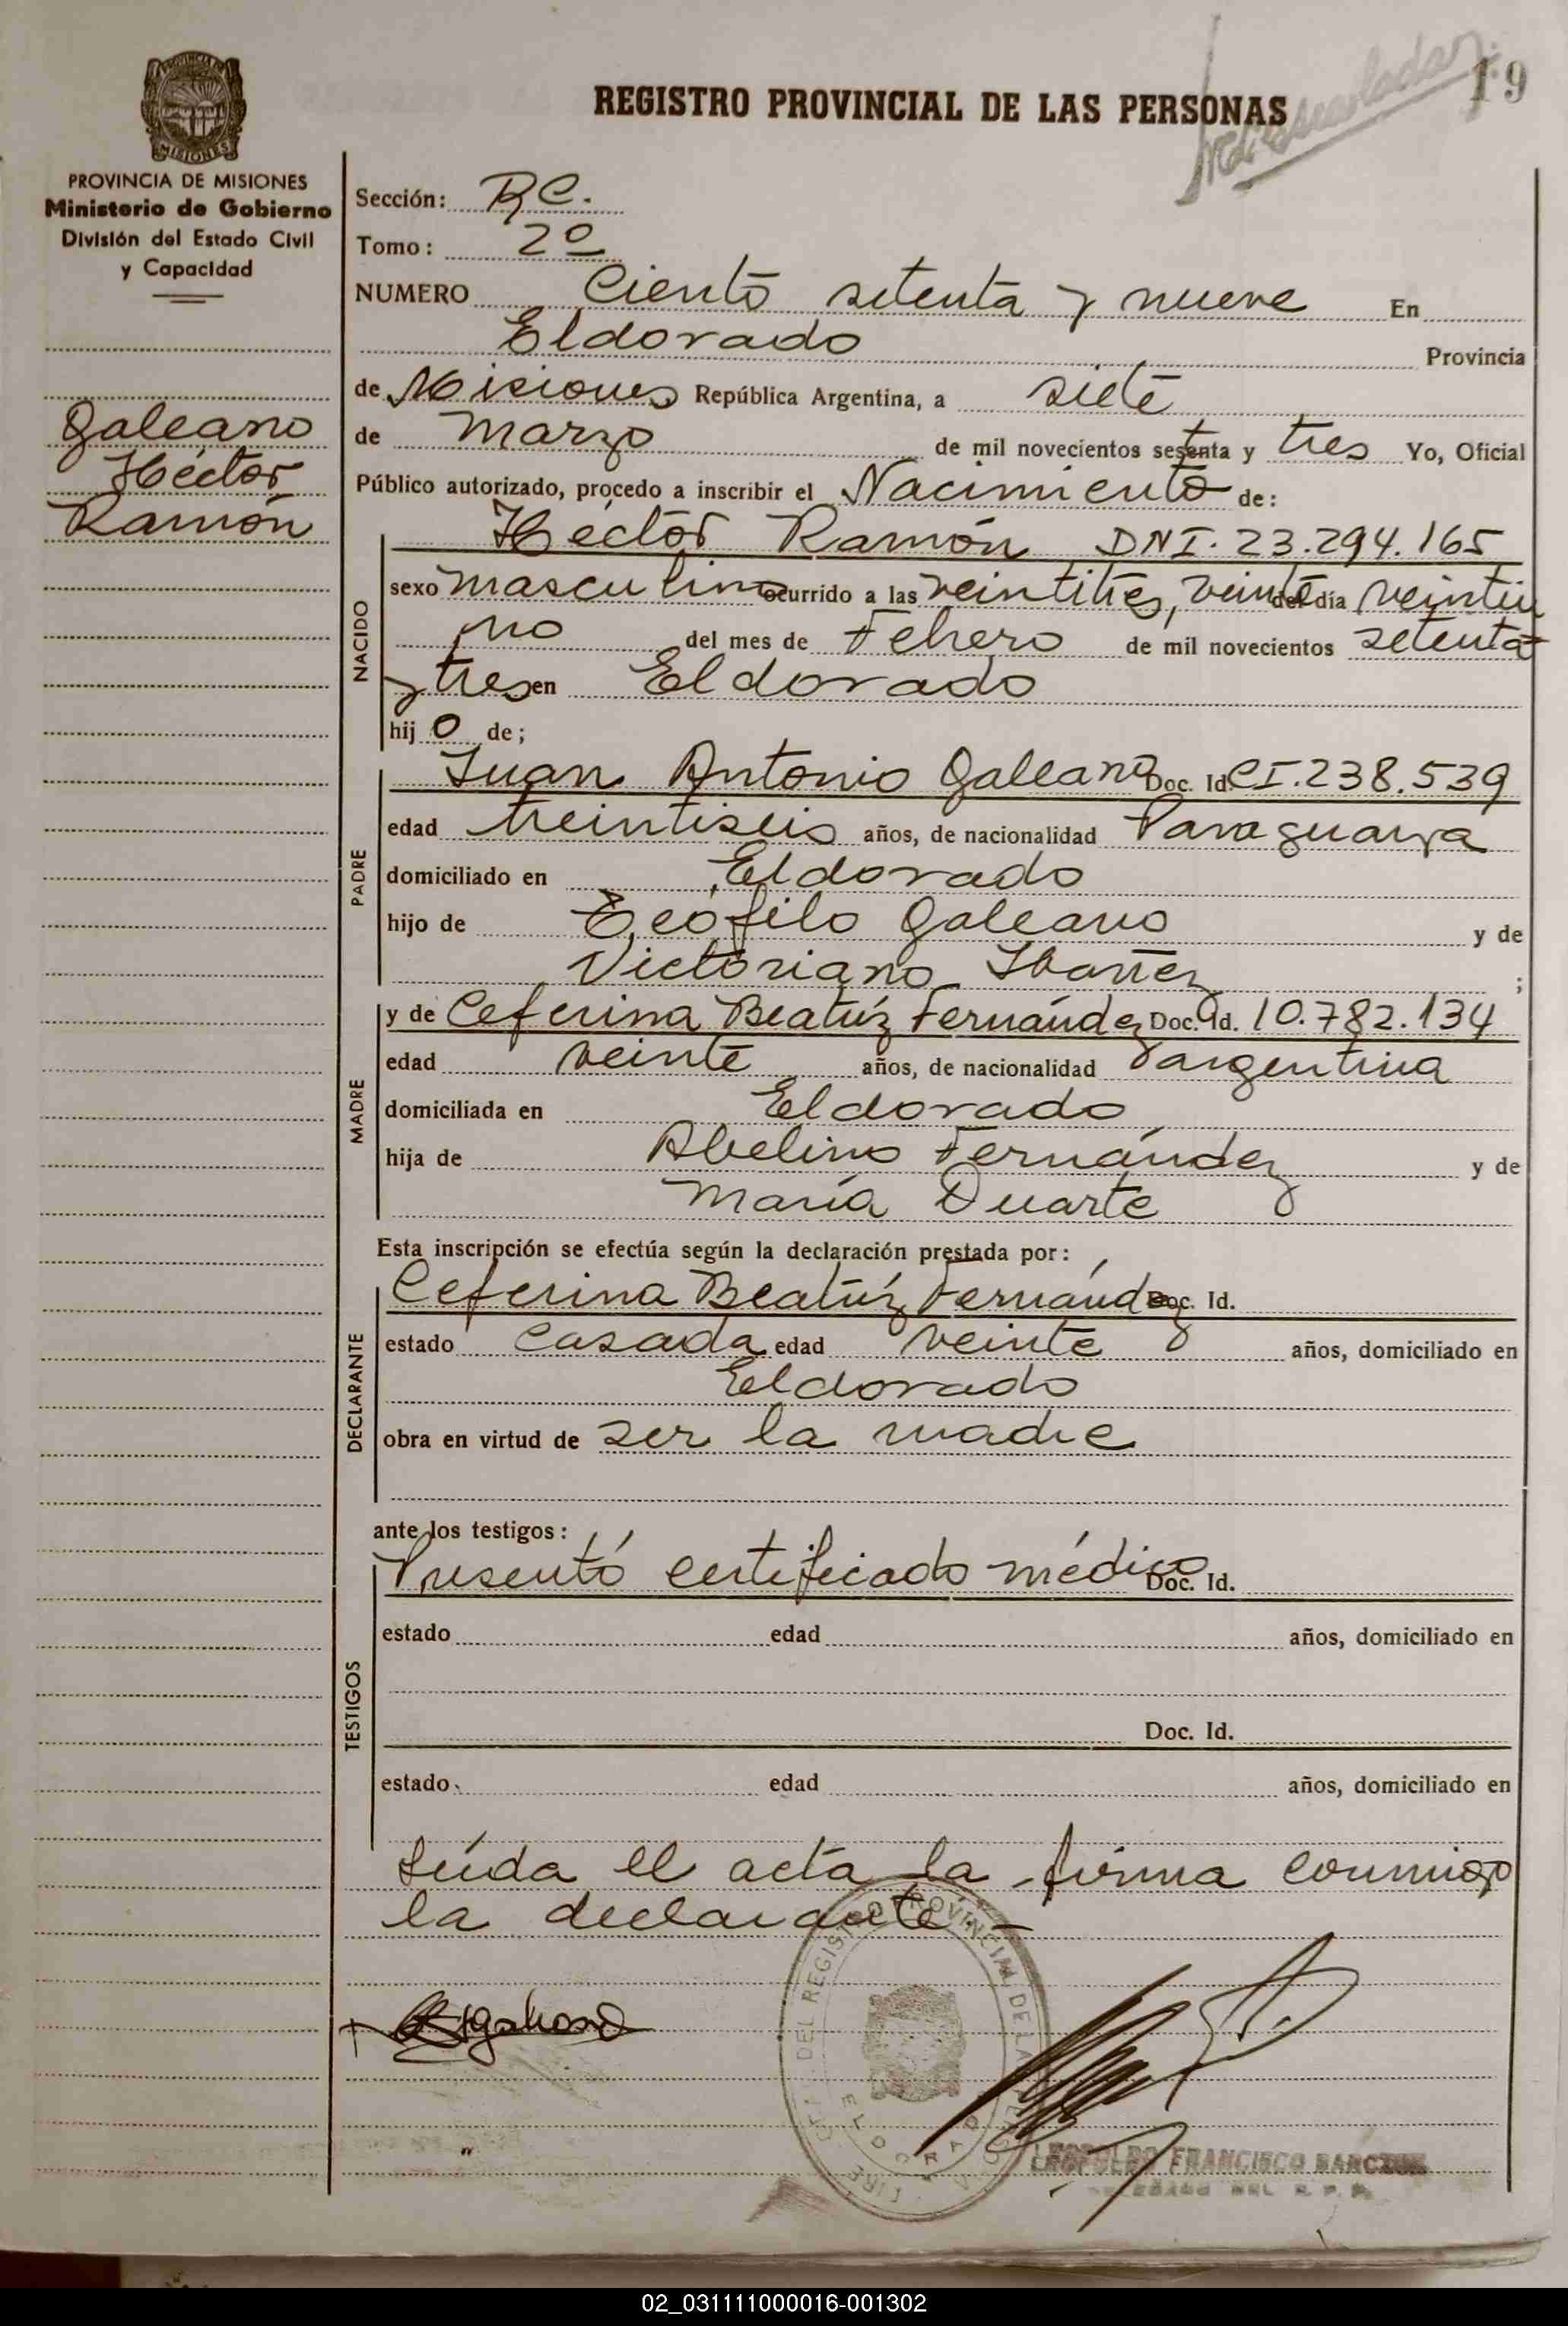 19
REGISTRO PROVINCIAL DE LAS PERSONAS
MISIONES
PROVINCIA DE MISIONES
Ministerio de Gobierno
División del Estado Civil
y Capacidad
Galeano
Héctor
Ramón
Sección: RC.
Tomo: 2º
NUMERO Ciento setenta y nueve En
Eldorado Provincia
de Misiones República Argentina, a siete
de Marzo de mil novecientos setenta y tres Yo, Oficial
Público autorizado, procedo a inscribir el Nacimiento de:
NACIDO
Héctor Ramón DNI. 23.294.165
sexo masculino ocurrido a las veintitres, veinte del día veintiu
no del mes de Febrero de mil novecientos setenta
y tres en Eldorado
hij o de;
PADRE
Juan Antonio Galeano Doc. Id. CI. 238.539
edad treintiseis años, de nacionalidad Paraguaya
domiciliado en Eldorado
hijo de Teófilo Galeano y de
Victoriana Ibañez ;
MADRE
y de Ceferina Beatriz Fernández Doc. Id. 10.782.134
edad veinte años, de nacionalidad argentina
domiciliada en Eldorado
hija de Abelino Fernández y de
María Duarte
Esta inscripción se efectúa según la declaración prestada por:
DECLARANTE
Ceferina Beatriz Fernández Doc. Id.
estado casada edad veinte años, domiciliado en
Eldorado
obra en virtud de ser la madre
ante los testigos:
TESTIGOS
Presentó certificado médico Doc. Id.
estado edad años, domiciliado en
Doc. Id.
estado edad años, domiciliado en
Leída el acta la firma conmigo
la declarante.-
REGISTRO PROVINCIAL DE LAS
ELDORADO
LEOPOLDO FRANCISCO
DELEGADO DEL R. P. P.
02_031111000016-001302